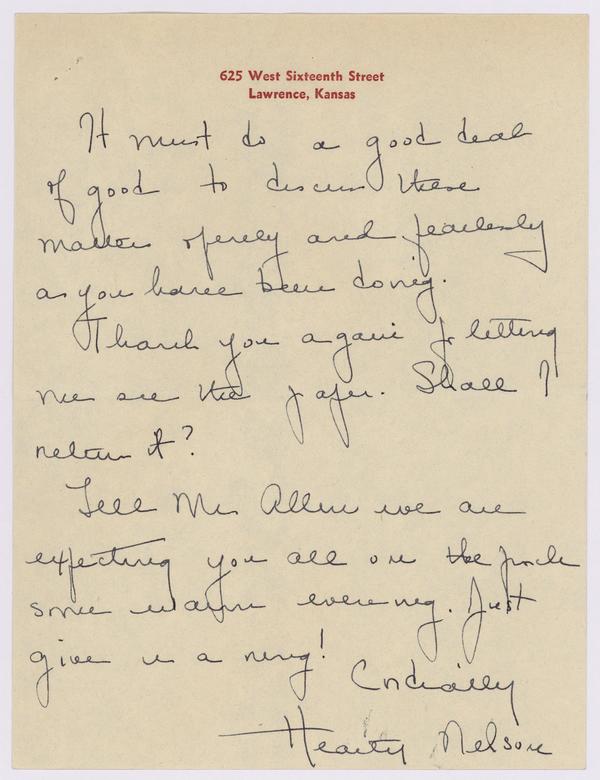 625 West Sixteenth Street
Lawrence, Kansas
It must do a good deal
of good to discuss these
matters openly and fearlessly
as you have been doing.
Thank you again for letting
me see the paper. Shall I
return it?
Tell Mrs Allen we are
expecting you all on the porch
some warm evening. Just
give us a ring!
Cordially
Nelson